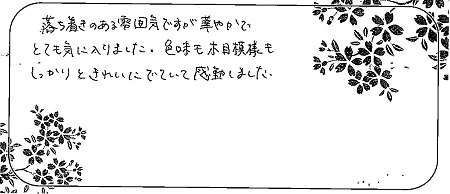 落ち着きのある雰囲気ですが華やかで、
とても気に入りました。色味も木目模様も
しっかりときれいにでていて感動しました。